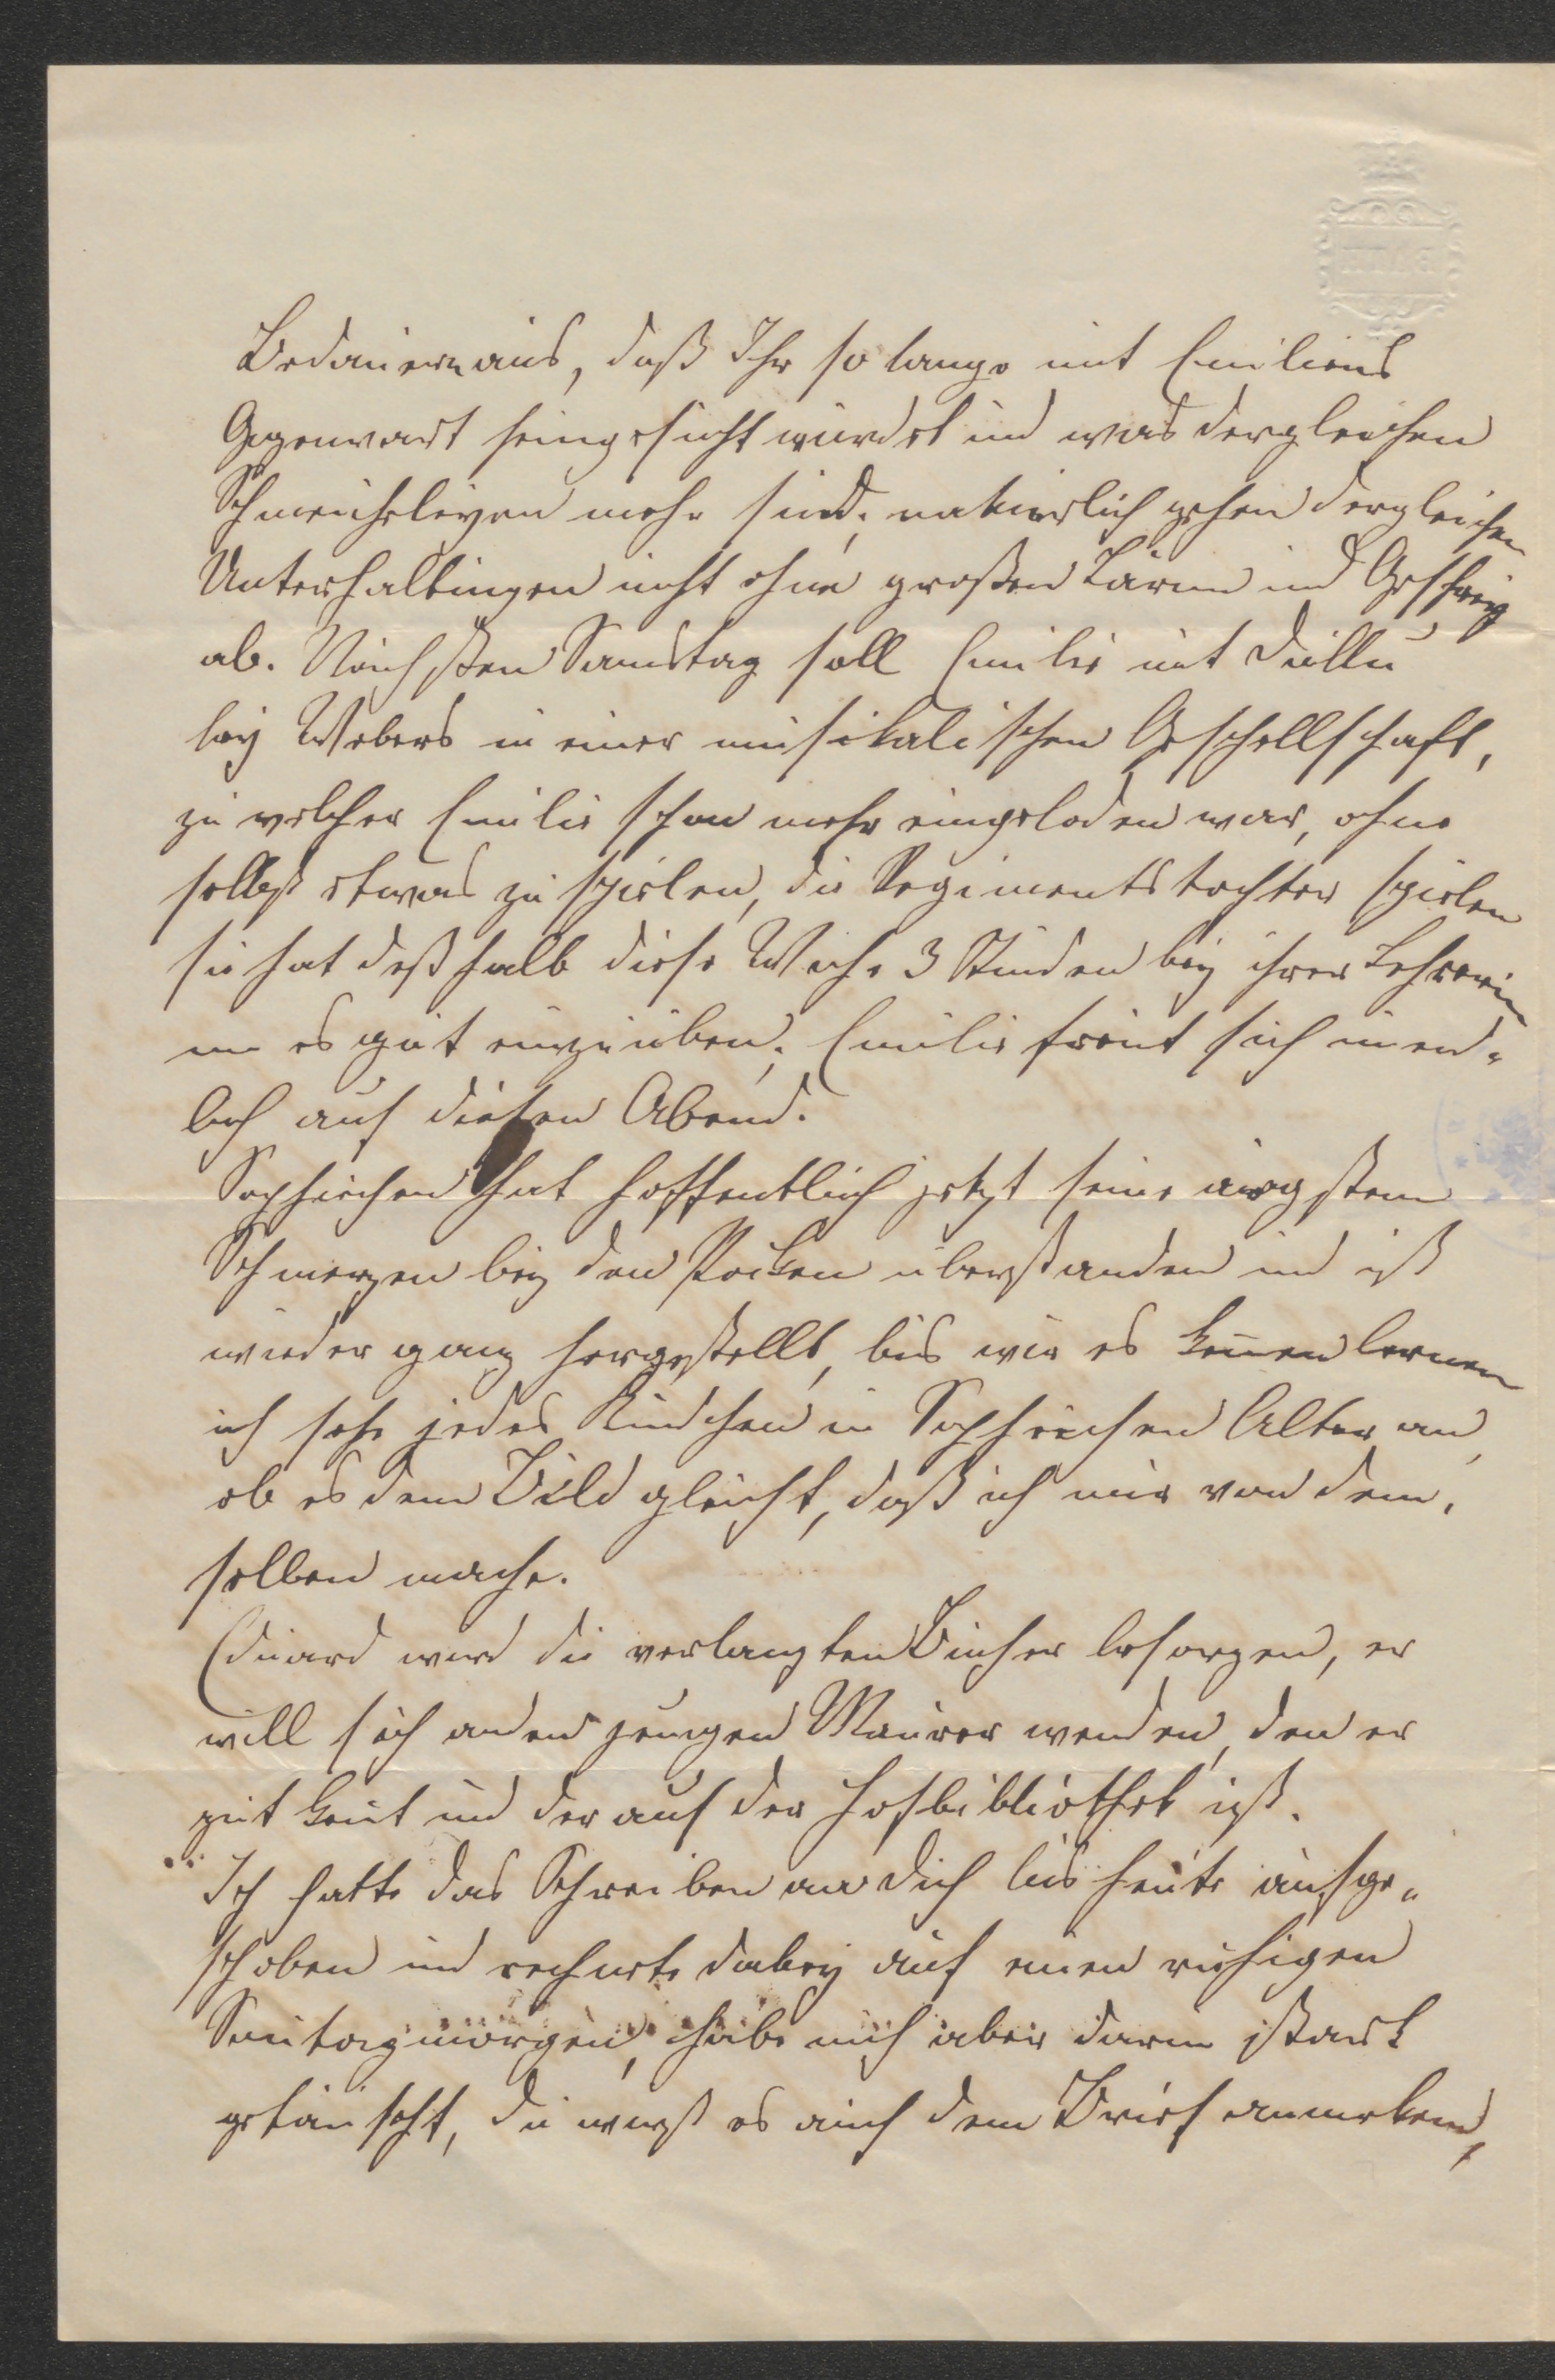 Bedauern aus, daß Ihr so lange mit Emiliens
Gegenwart heimgesucht würdet und was dergleichen
Schmeicheleyen mehr sind, natürlich gehen dergleichen
Unterhaltungen nicht ohne großen Lärm und Geschrey
ab. Nächsten Samstag soll Emilie mit
bey Webers in einer musikalischen Geschellschaft,
zu welcher Emilie schon mehr eingeladen war, ohne
selbst etwas zu spielen, die Regimentstochter spielen
sie hat deßhalb diese Woche 3 Stunden bey ihrer Lehrerin
um es gut einzuüben, Emilie freut sich unend-
lich auf diesen Abend.
Sophiechen hat hoffentlich jetzt seine ärgsten
Schmerzen bey den Pocken überstanden und ist
wieder ganz hergestellt, bis wir es kennen lernen
ich sehe jedes Kindchen in Sophiechen Alter an,
ob es dem Bild gleicht, daß ich mir von dem-
selben mache.
Eduard wird die verlangten Bücher besorgen, er
will sich an den jungen Maurer wenden, den er
gut kent und der auf der Hofbibliothek ist.
Ich hatte das Schreiben an dich bis heute aufge-
schoben und rechnete dabey auf einen ruhigen
Sontagmorgen, habe mich aber darin stark
getäuscht, du wirst es auch dem Brief anmerken,